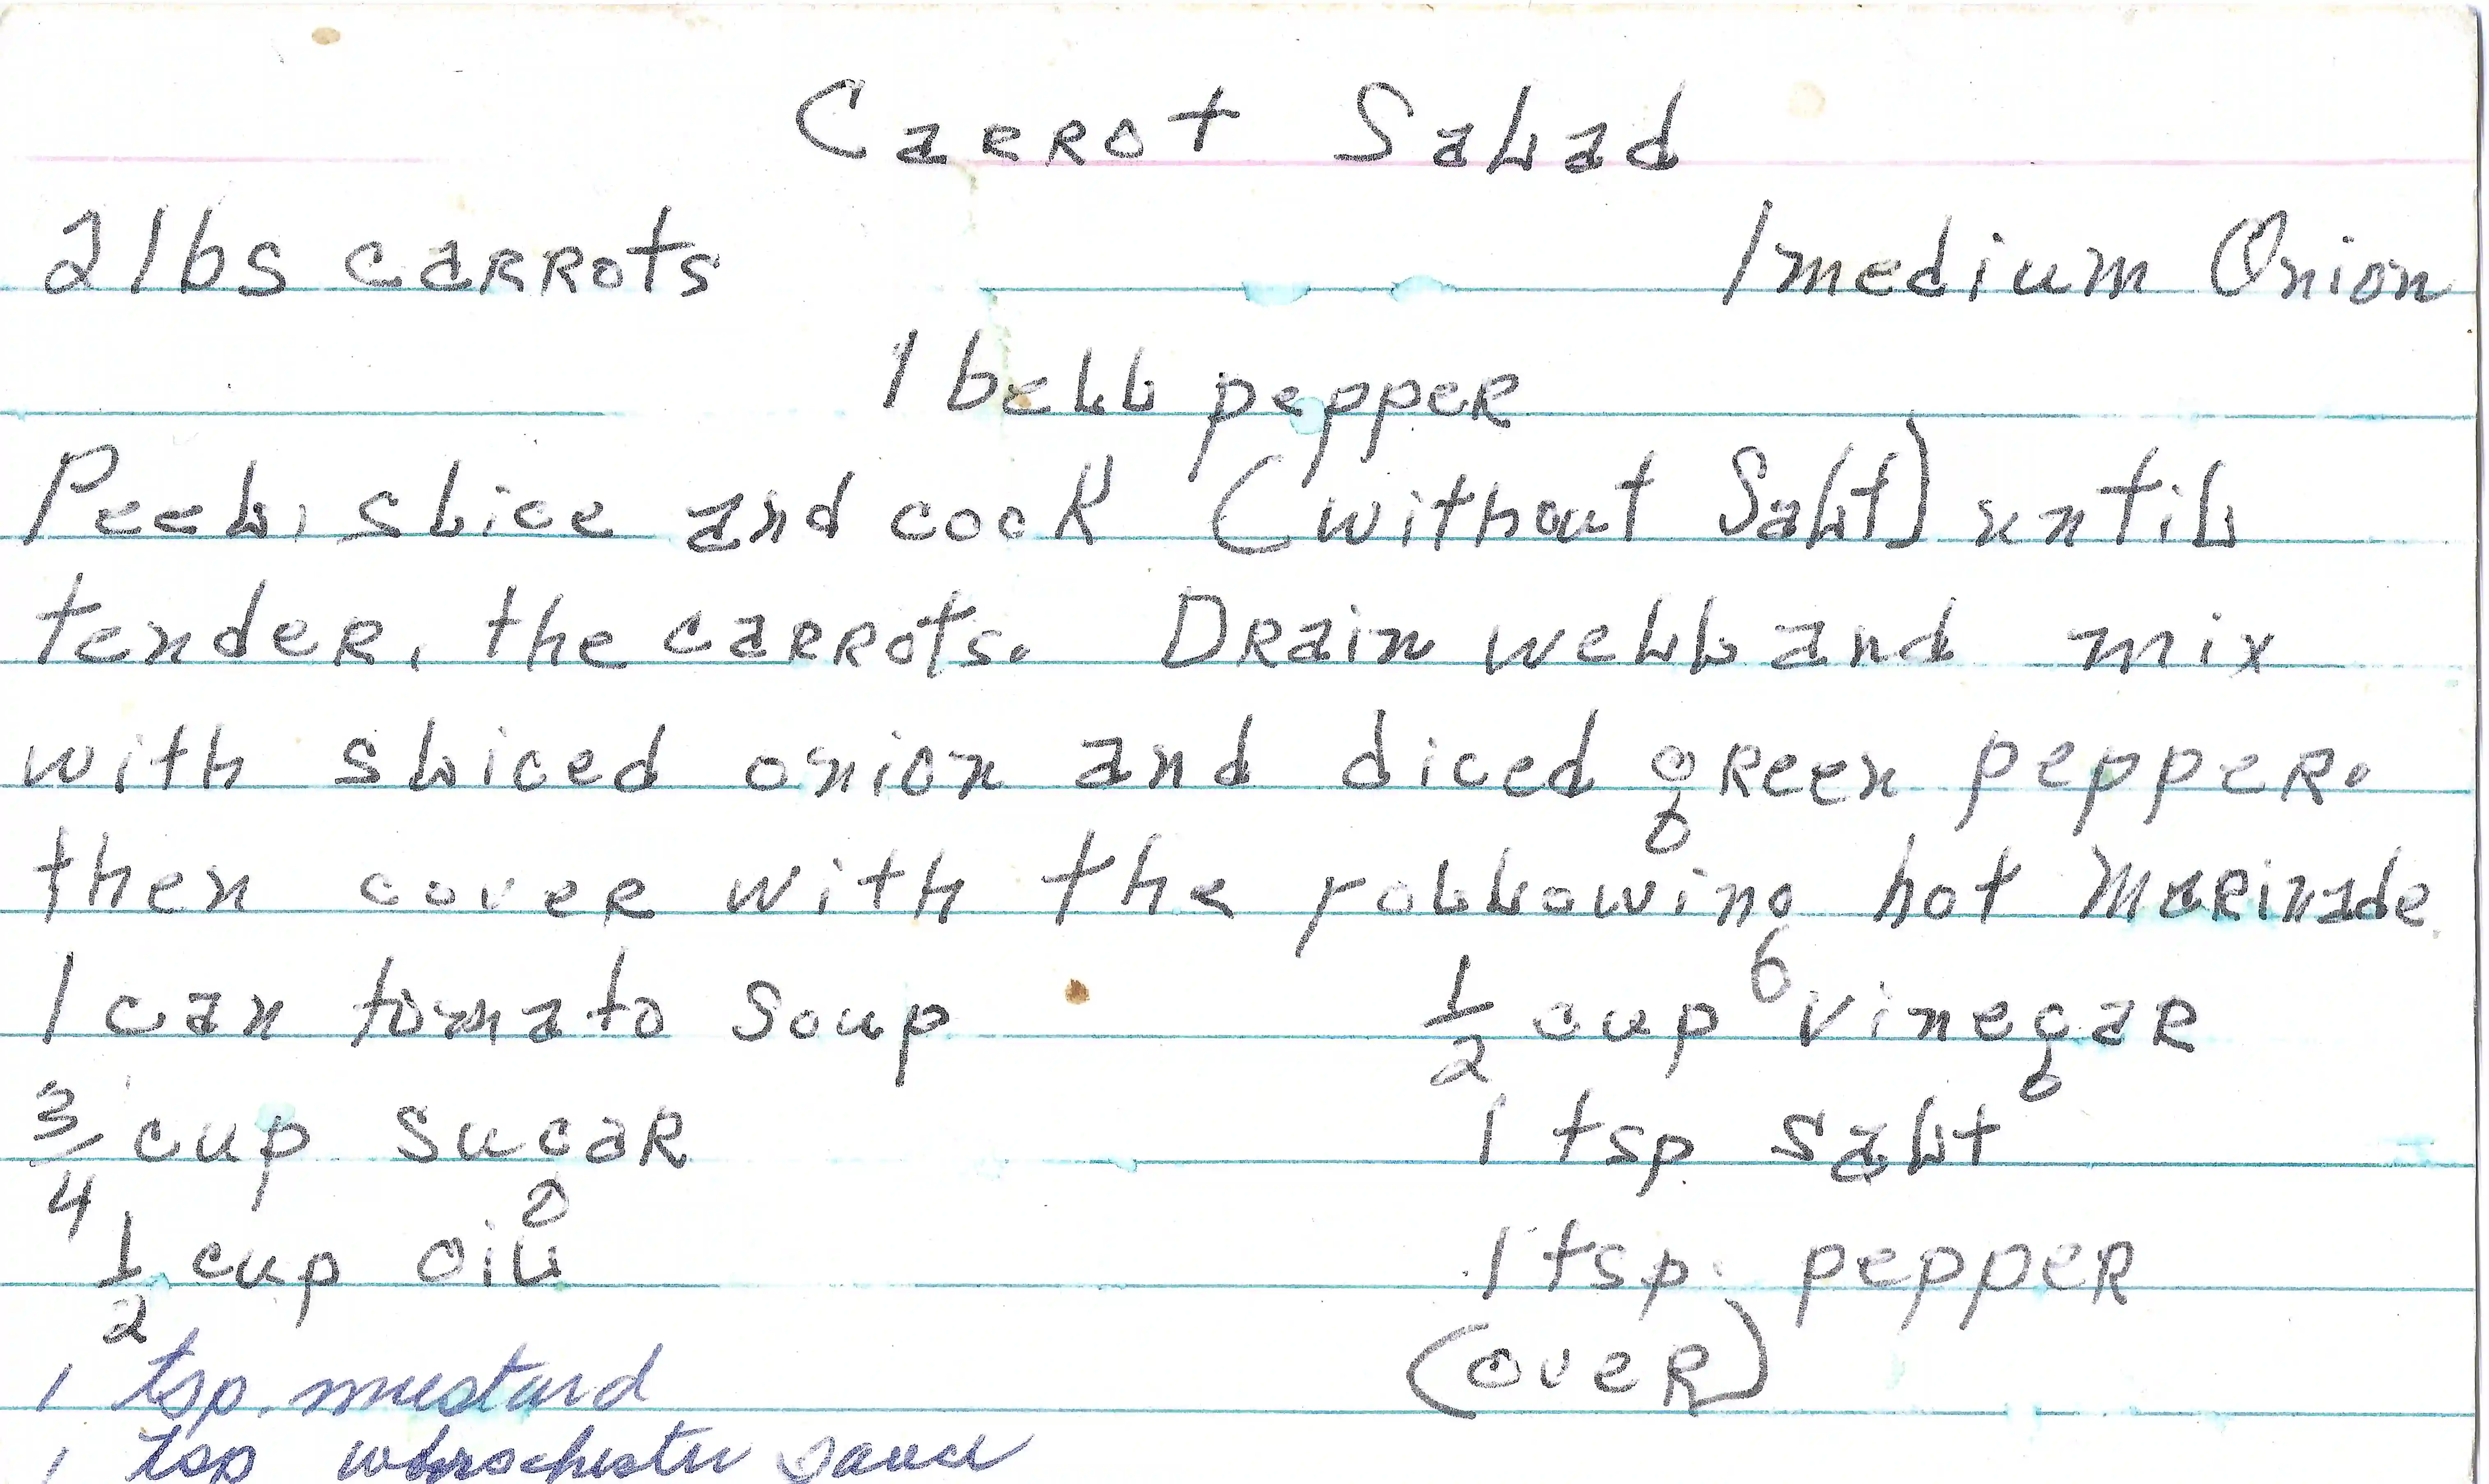 Carrot Salad
2 lbs carrots 1 medium Onion
1 bell pepper
Peel, slice and cook (without Salt) until
tender, the carrots. Drain well and mix
with sliced onion and diced green pepper.
then cover with the following hot Marinade
1 can tomato Soup 1/2 cup vinegar
3/4 cup sugar 1 tsp salt
1/2 cup oil 1 tsp. pepper
1 tsp. mustard (over)
1 tsp worschester sauce